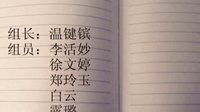 组长：温键镔
组员：李活妙
徐文婷
郑玲玉
白云
露璐